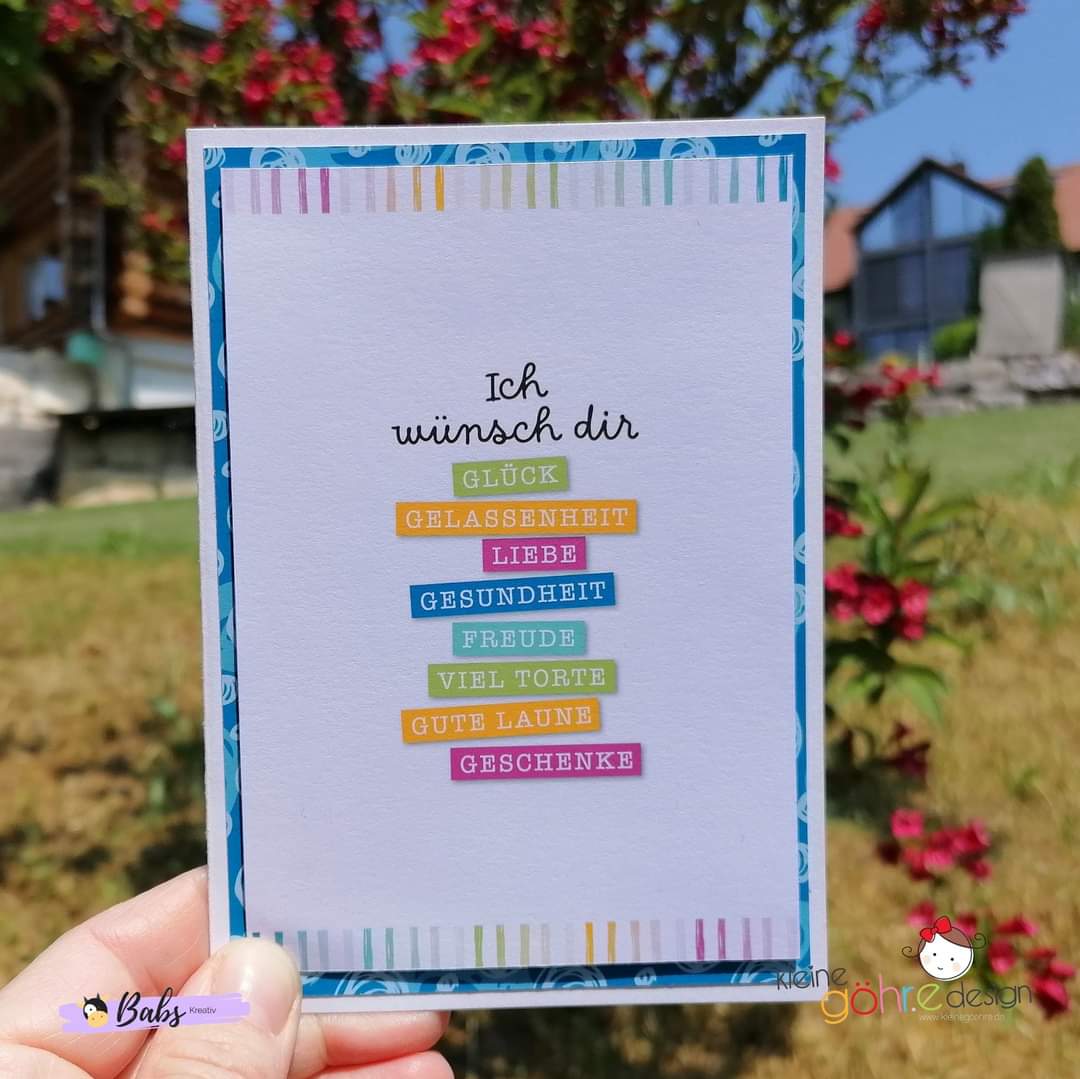 Ich
wünsch dir
GLÜCK
GELASSENHEIT
LIEBE
GESUNDHEIT
FREUDE
VIEL TORTE
GUTE LAUNE
GESCHENKE
Babs Kreativ
kleine
göhr.e design
www.kleinegoehre.de